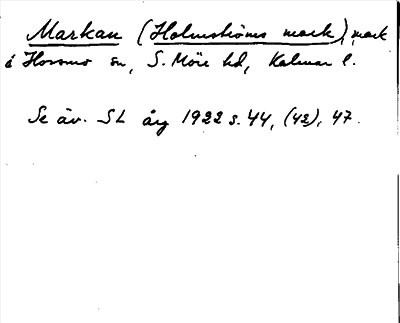 Markan (Holmströms mark), mark
i Hossmo sn, S. Möre hd, Kalmar l.
Se äv. SL årg 1922 s. 44, (42), 47.